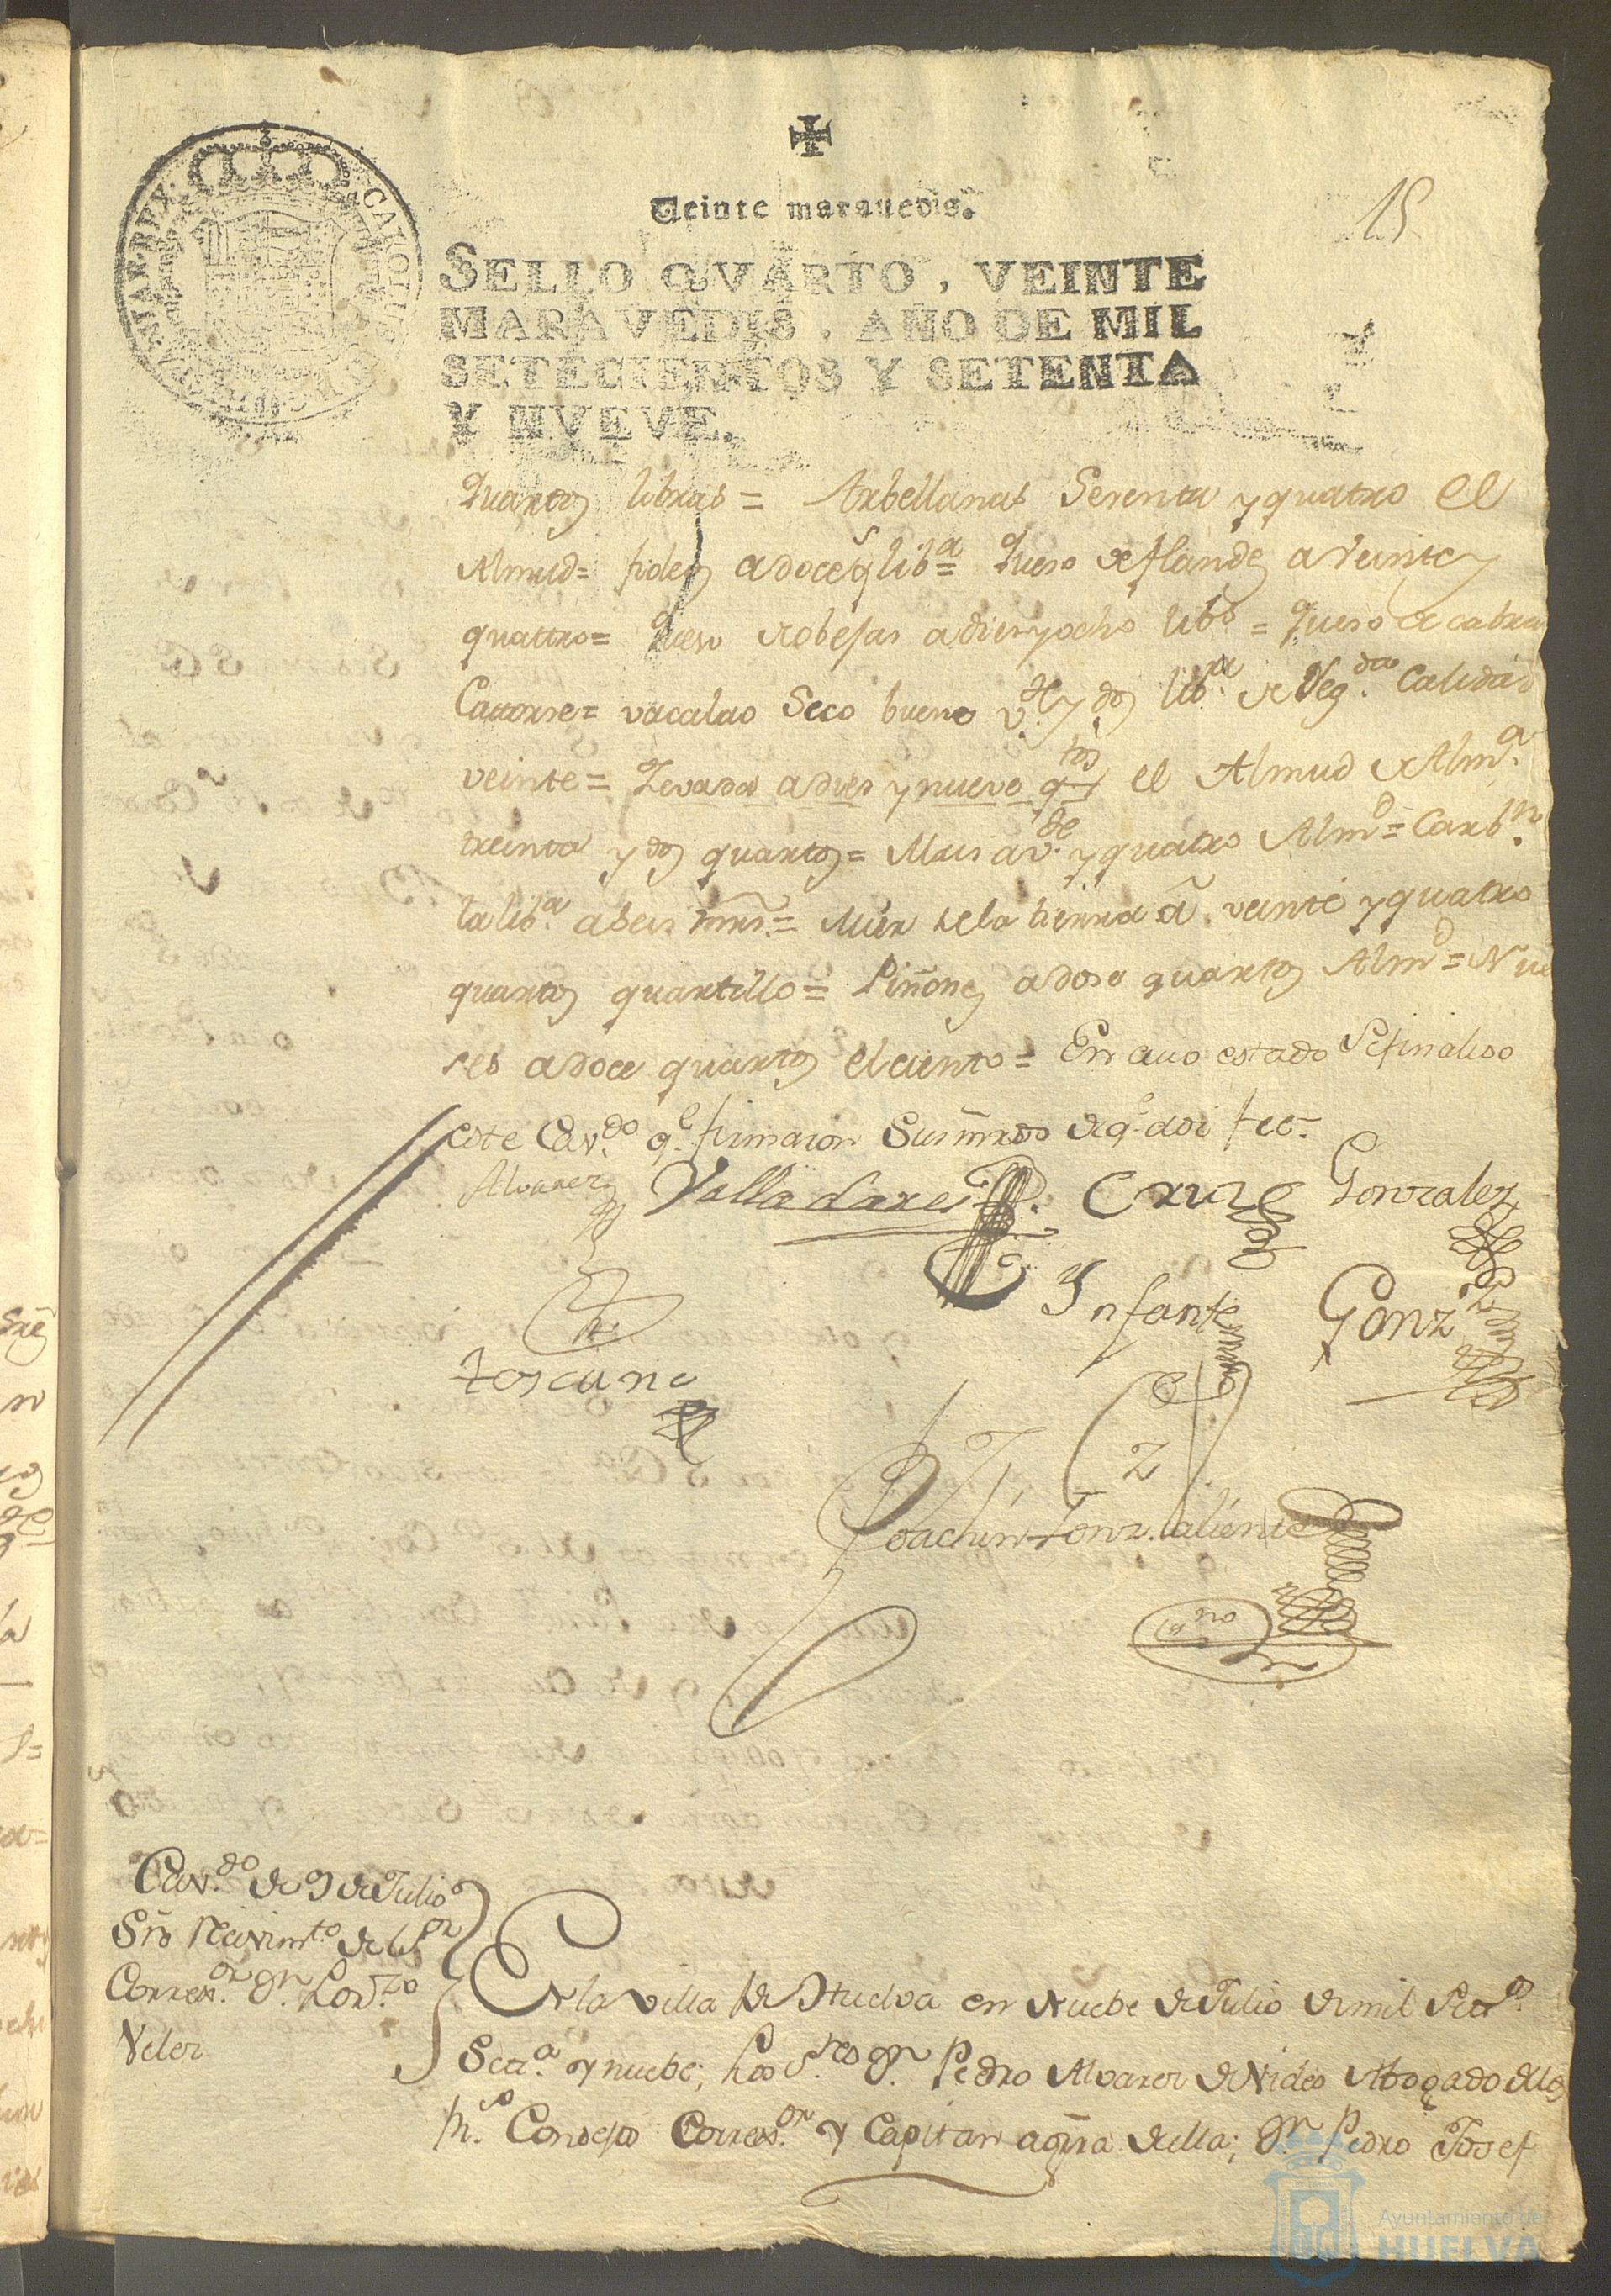 15
Veinte maravedis.
SELLO QVARTO, VEINTE
MARAVEDIS, AÑO DE MIL
SETECIENTOS Y SETENTA
Y NVEVE.
CAROLUS
quartos libras = Arbellanas Sesenta y quatro el
Almud = fideos a doce qs lib.a = Queso de flandes a veinte y
quattro = Queso de obejas a dies y ocho lib.s = queso de cabra
Catorse = vacalao Seco bueno v.te y dos lib.a de Seg.da Calidad
veinte = Zevada a dies y nueve q.tos el Almud de Alm.a
treinta y dos quartos = Mais a v.te y quatro Alm.d = Carb.n
la lib.a a seis mrs = Miel de la tierra a veinte y quatro
quartos quartillo = Piñones a dose quartos Alm.d = Nue
ses a doce quartos el ciento = En cuio estado Se finaliso
este Cav.do q.e firmaron Sus mrds de q.e doi fee =
Alvarez Valladares Cruz Gonzalez
Infante Gonz
toscano
Joachin Gonz. Valiente
es.no
Cav.do de 9 de Julio
Sre recivim.to del S.or
Correx.or Dn. Lor.zo
Velez
En la villa de Huelva en Nuebe de Julio de mil Setec.s
Set.a y nuebe; Los S.res Dn. Pedro Alvarez de Video Abogado de los
R.s Consejos Correx.or y Capitan a gra de ella; Dn. Pedro Josef
Ayuntamiento de
HUELVA